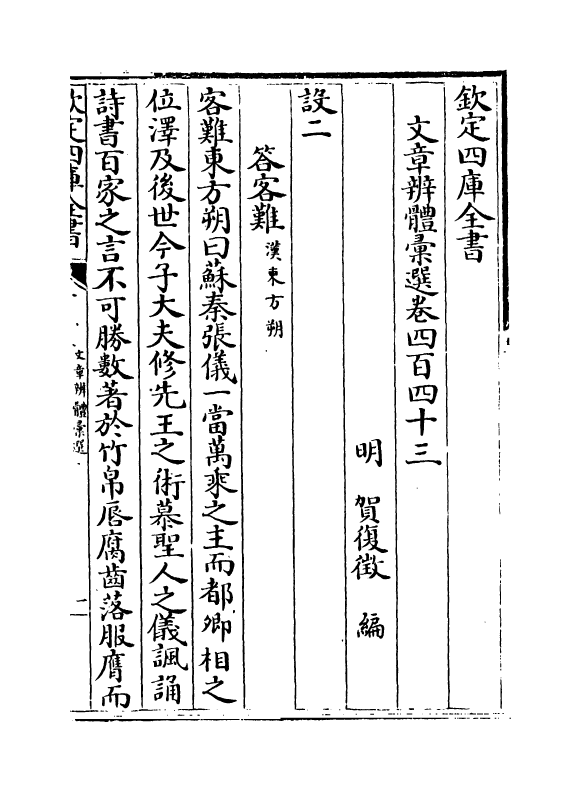 欽定四庫全書
文章辨體彚選卷四百四十三
明 賀復徵 編
設二
答客難漢東方朔
客難東方朔曰蘇秦張儀一當萬乘之主而都卿相之
位澤及後世今子大夫修先王之術慕聖人之儀諷誦
詩書百家之言不可勝數著於竹帛唇腐齒落服膺而
欽定四庫全書
文章辨體彚選